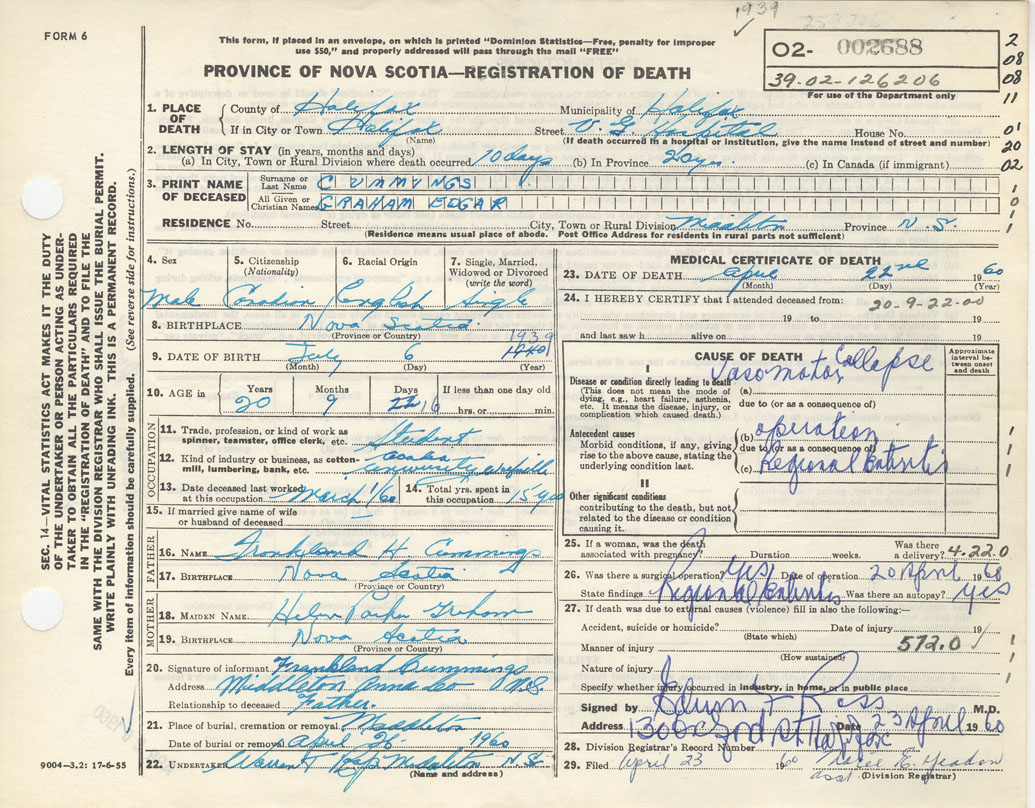 1939
FORM 6
This form, if placed in an envelope, on which is printed "Dominion Statistics—Free, penalty for improper
use $50," and properly addressed will pass through the mail "FREE"
PROVINCE OF NOVA SCOTIA—REGISTRATION OF DEATH
O2- 002688
39.02-126206
For use of the Department only
2
08
08
11
01
20
02
1. PLACE OF DEATH { County of Halifax Municipality of Halifax
If in City or Town Halifax Street V. G. Hospital House No.
(Name) (If death occurred in a hospital or institution, give the name instead of street and number)
2. LENGTH OF STAY (in years, months and days)
(a) In City, Town or Rural Division where death occurred 10 days (b) In Province 20 yrs. (c) In Canada (if immigrant)
3. PRINT NAME OF DECEASED { Surname or Last Name CUMMINGS
All Given or Christian Names GRAHAM EDGAR
RESIDENCE No. Street City, Town or Rural Division Middleton Province N.S.
(Residence means usual place of abode. Post Office Address for residents in rural parts not sufficient)
SEC. 14—VITAL STATISTICS ACT MAKES IT THE DUTY
OF THE UNDERTAKER OR PERSON ACTING AS UNDER-
TAKER TO OBTAIN ALL THE PARTICULARS REQUIRED
IN THE "REGISTRATION OF DEATH" AND TO FILE THE
SAME WITH THE DIVISION REGISTRAR WHO SHALL ISSUE THE BURIAL PERMIT.
WRITE PLAINLY WITH UNFADING INK. THIS IS A PERMANENT RECORD.
Every item of information should be carefully supplied. (See reverse side for instructions.)
4. Sex 5. Citizenship (Nationality) 6. Racial Origin 7. Single, Married, Widowed or Divorced (write the word)
Male Canadian English Single
8. BIRTHPLACE Nova Scotia
(Province or Country)
1939
9. DATE OF BIRTH July 6 1940
(Month) (Day) (Year)
10. AGE in Years 20 Months 9 Days 16 If less than one day old hrs. or min.
OCCUPATION
11. Trade, profession, or kind of work as
spinner, teamster, office clerk, etc. Student
12. Kind of industry or business, as cotton-
mill, lumbering, bank, etc. Acadia University Wolfville
13. Date deceased last worked at this occupation March 1/60
14. Total yrs. spent in this occupation 15 yrs
15. If married give name of wife
or husband of deceased —
FATHER
16. NAME Frankland H. Cummings
17. BIRTHPLACE Nova Scotia
(Province or Country)
MOTHER
18. MAIDEN NAME Helen Parker Graham
19. BIRTHPLACE Nova Scotia
(Province or Country)
20. Signature of informant Frankland Cummings
Address Middleton Anna Co N.S.
Relationship to deceased Father.
21. Place of burial, cremation or removal Middleton
Date of burial or removal April 26 1960
22. UNDERTAKER Middleton N.S.
(Name and address)
9004—3.2: 17-6-55
MEDICAL CERTIFICATE OF DEATH
23. DATE OF DEATH April 22nd 1960
(Month) (Day) (Year)
24. I HEREBY CERTIFY that I attended deceased from:
20-9-22-00
19 to 19
and last saw h alive on 19
CAUSE OF DEATH
Approximate interval between onset and death
I
Disease or condition directly leading to death
(This does not mean the mode of
dying, e.g., heart failure, asthenia,
etc. It means the disease, injury, or
complication which caused death.)
(a) Vasomotor Collapse
due to (or as a consequence of)
Antecedent causes
Morbid conditions, if any, giving
rise to the above cause, stating the
underlying condition last.
(b) operation
due to (or as a consequence of)
(c) Regional Enteritis
II
Other significant conditions
contributing to the death, but not
related to the disease or condition
causing it.
25. If a woman, was the death
associated with pregnancy? Duration weeks. Was there a delivery? 4.22.0
26. Was there a surgical operation? Yes Date of operation 20 April 1960
State findings Regional Enteritis Was there an autopsy? yes
27. If death was due to external causes (violence) fill in also the following:—
Accident, suicide or homicide? Date of injury 19
(State which)
Manner of injury 572.0
(How sustained)
Nature of injury
Specify whether injury occurred in industry, in home, or in public place
Signed by Edwin F Ross M.D.
Address Halifax Date 23 April 1960
28. Division Registrar's Record Number
29. Filed April 23 1960
asst. (Division Registrar)